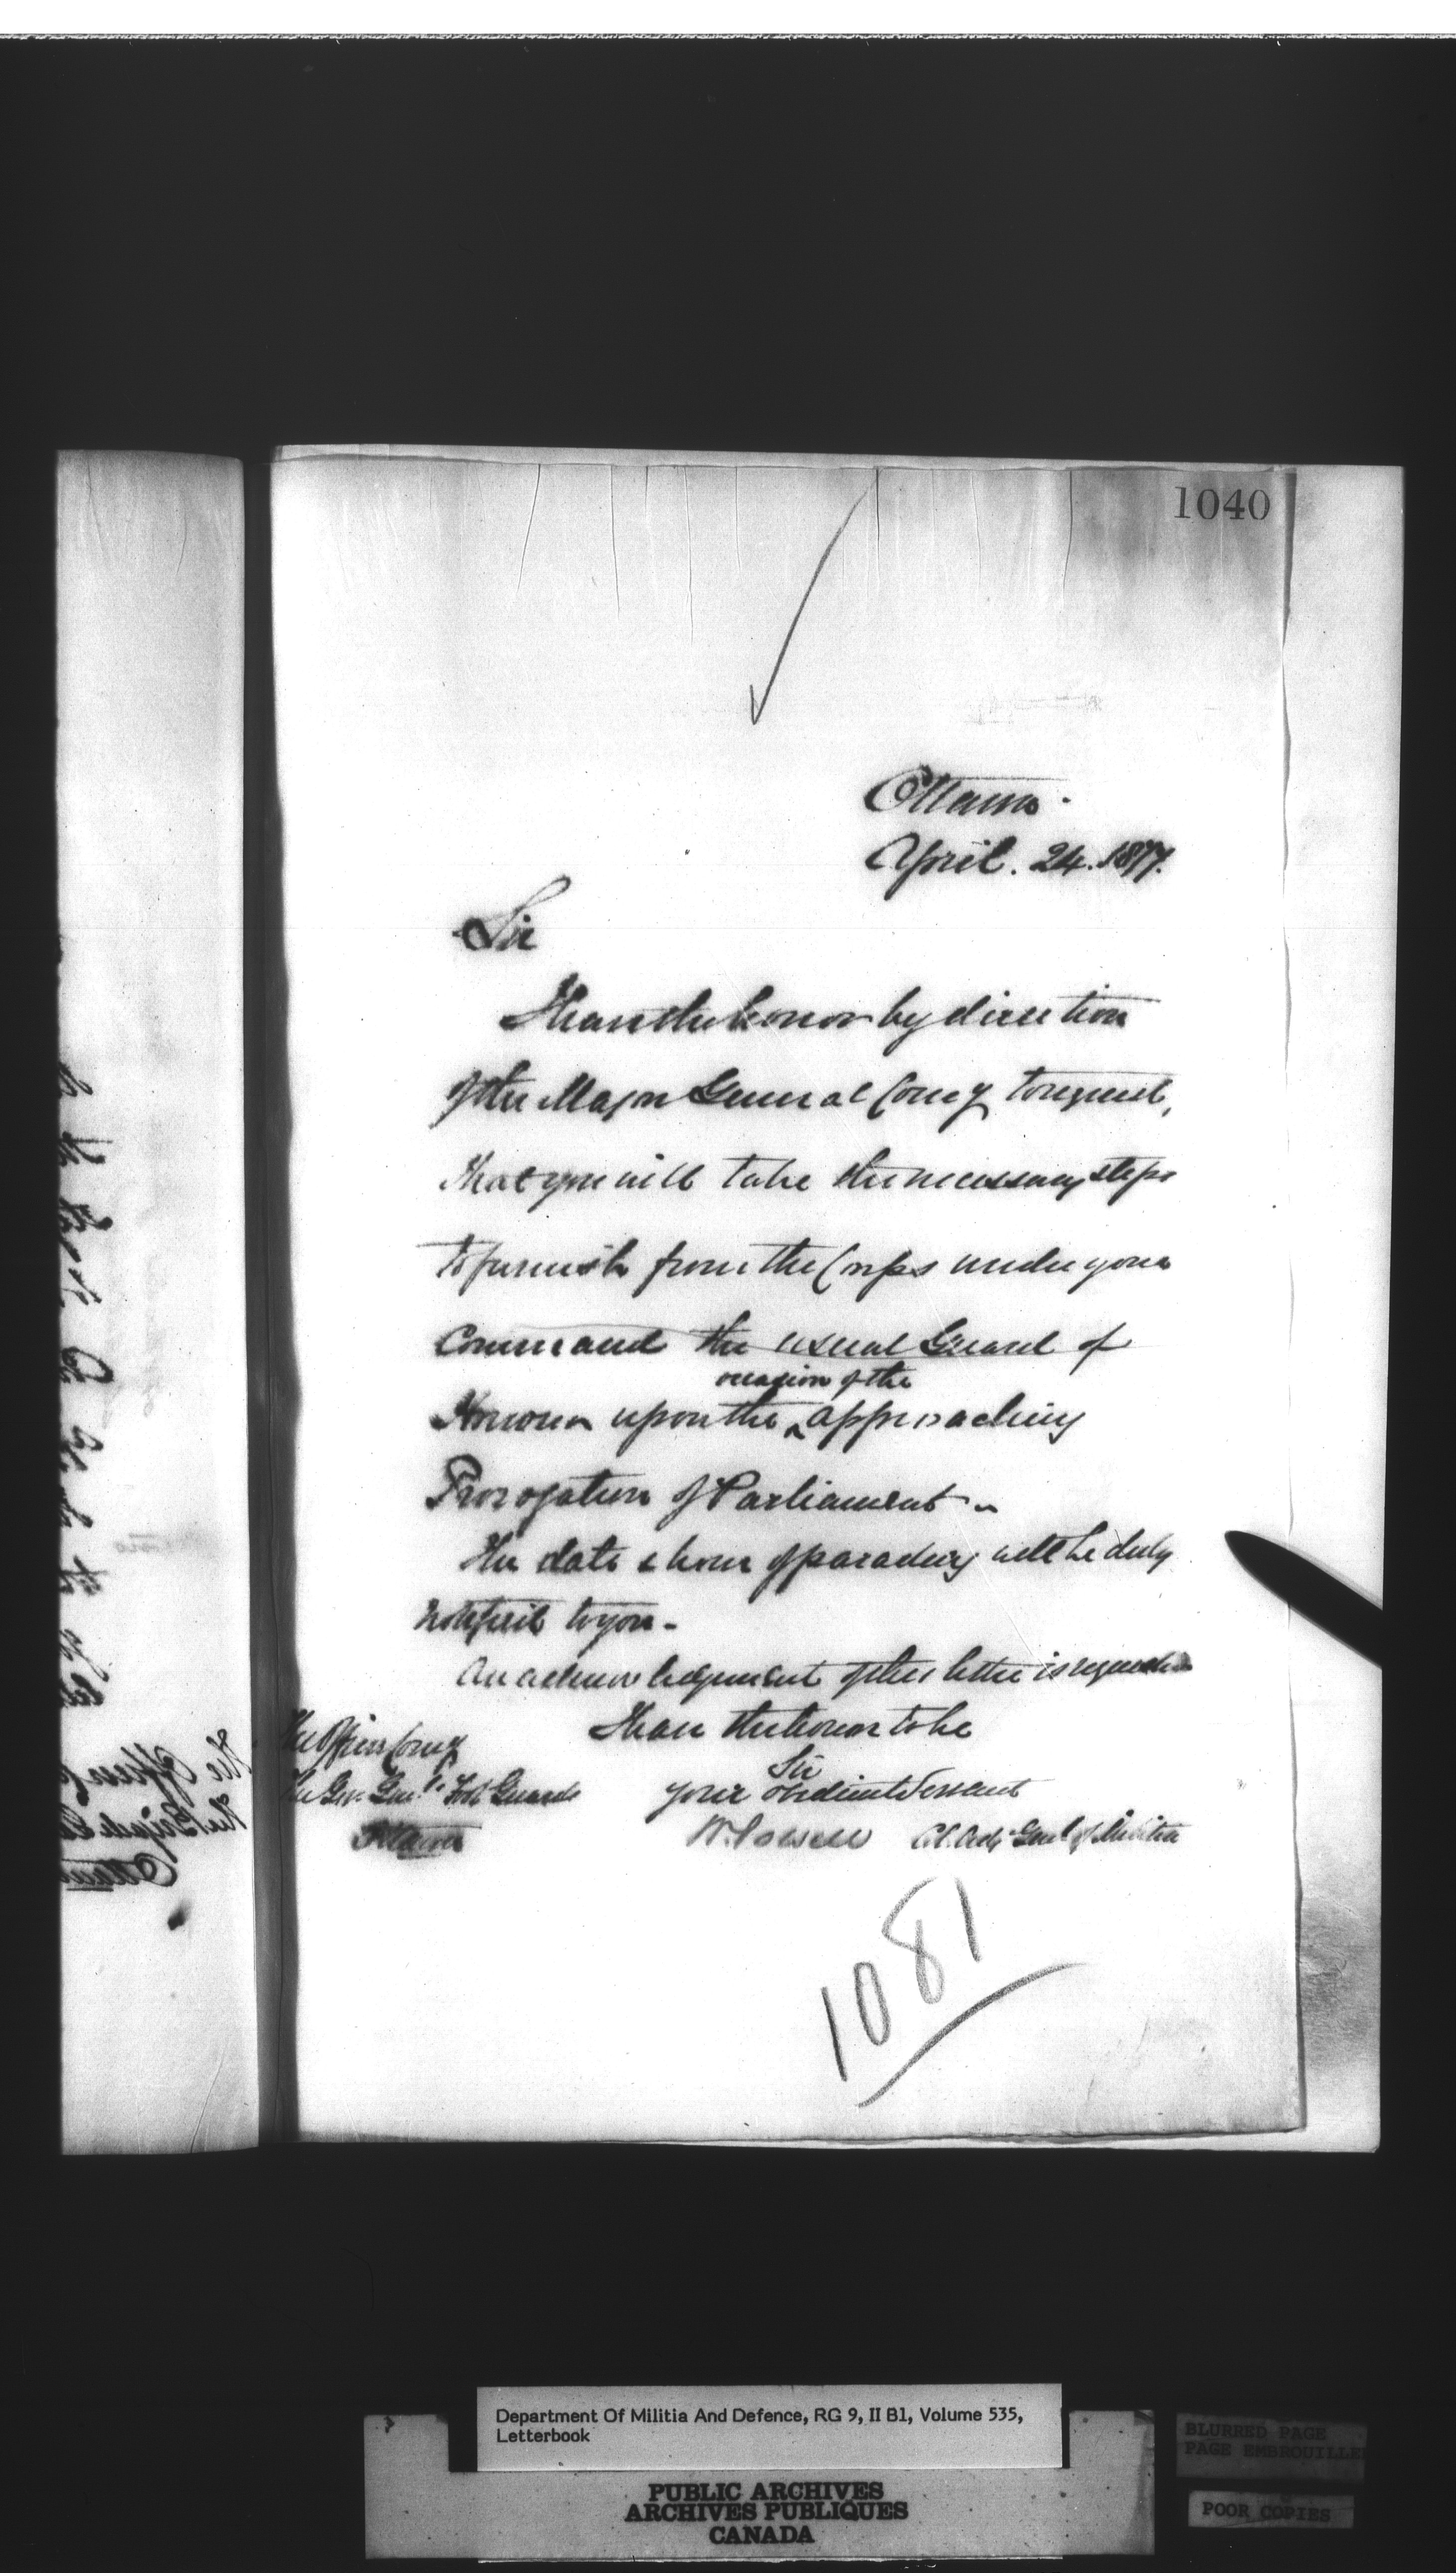 1040
Ottawa.
April. 24. 1877.
Sir
I have the honor by direction
of the Major General Comg to request,
that you will take the necessary steps
to furnish from the Corps under your
Command the usual Guard of
occasion of the
Honour upon the ^ approaching
Prorogation of Parliament -
The date & hour of parading will be duly
notified to you -
An acknowledgement of this letter is requested
I have the honor to be
Sir
your obedient Servant
W. Powell Col. Adjt Genl of Militia
The Officer Comg
The Gov. Genls. Foot Guards
Ottawa
1081
The Officer
The Brigade
Ottawa
Department Of Militia And Defence, RG 9, II B1, Volume 535,
Letterbook
PUBLIC ARCHIVES
ARCHIVES PUBLIQUES
CANADA
BLURRED PAGE
PAGE EMBROUILLE
POOR COPIES